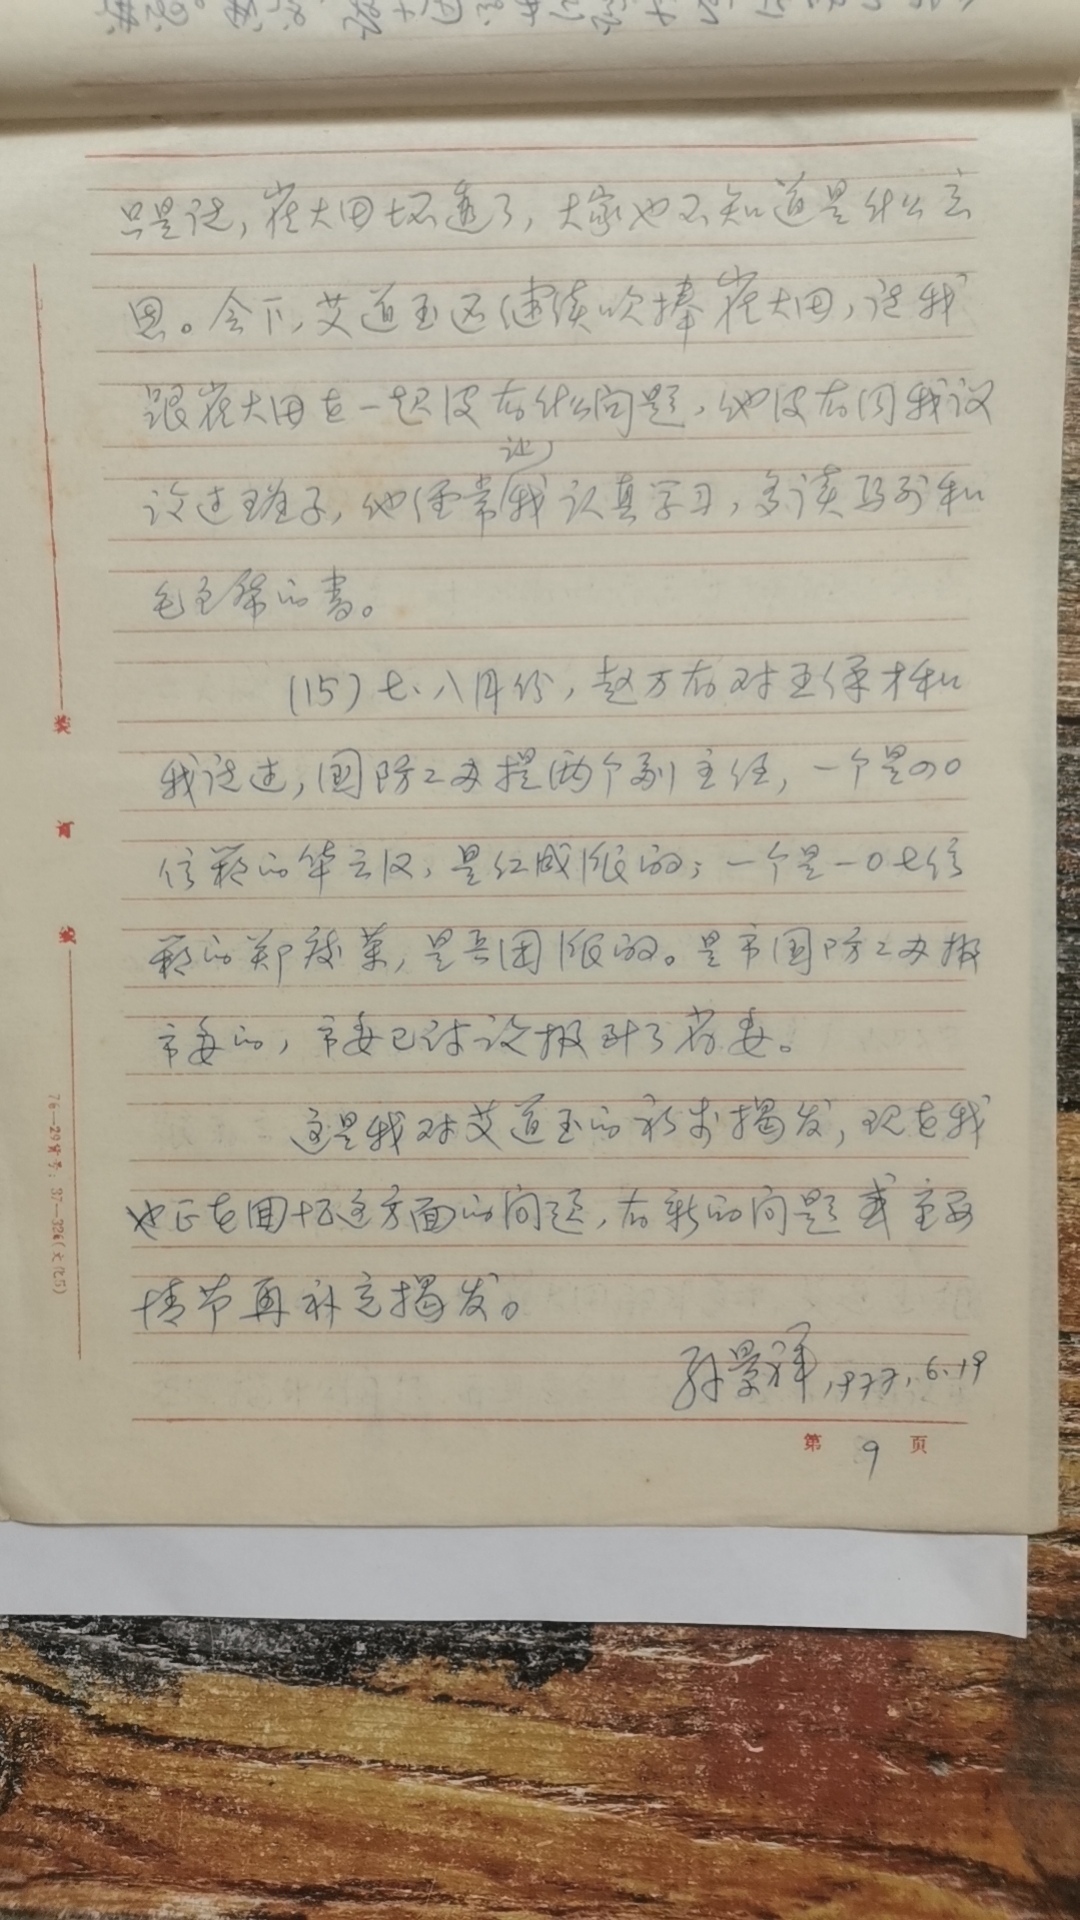 只是说，崔大田坏透了，大家也不知道是什么意
思。会下，艾道玉还继续吹捧崔大田，说我
跟崔大田在一起没有什么问题，他没有同我议
论过班子，他经常让我认真学习，多读马列和
毛主席的书。
(15)七、八月份，赵万有对王保才和
我说过，国防工办提两个副主任，一个是
信箱的华云汉，是红成派的；一个是一0七信
箱的郑，是兵团派的。是市国防工办报
市委的，市委已讨论报到了省委。
这是我对艾道玉的初步揭发，现在我
也正在回忆这方面的问题，有新的问题或主要
情节再补充揭发。
孙景祥，1977.6.19
第 9 页
装
订
线